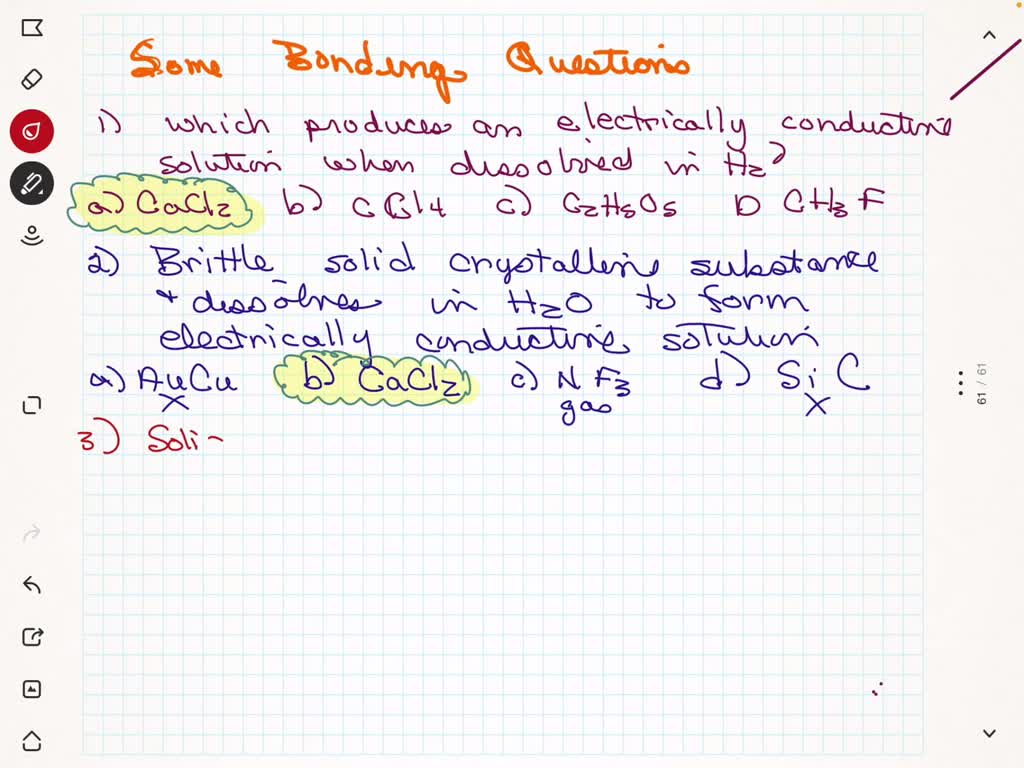 Some Bonding Questions
1) which produces an electrically conductive
solution when dissolved in H2?
a) CaCl2 b) CCl4 c) C2H5O5 D CH3F
2) Brittle solid crystalline substance
+ dissolves in H2O to form
electrically conductive solution
a) AuCu b) CaCl2 c) NF3 d) SiC
X gas X
3) Soli
61 / 61